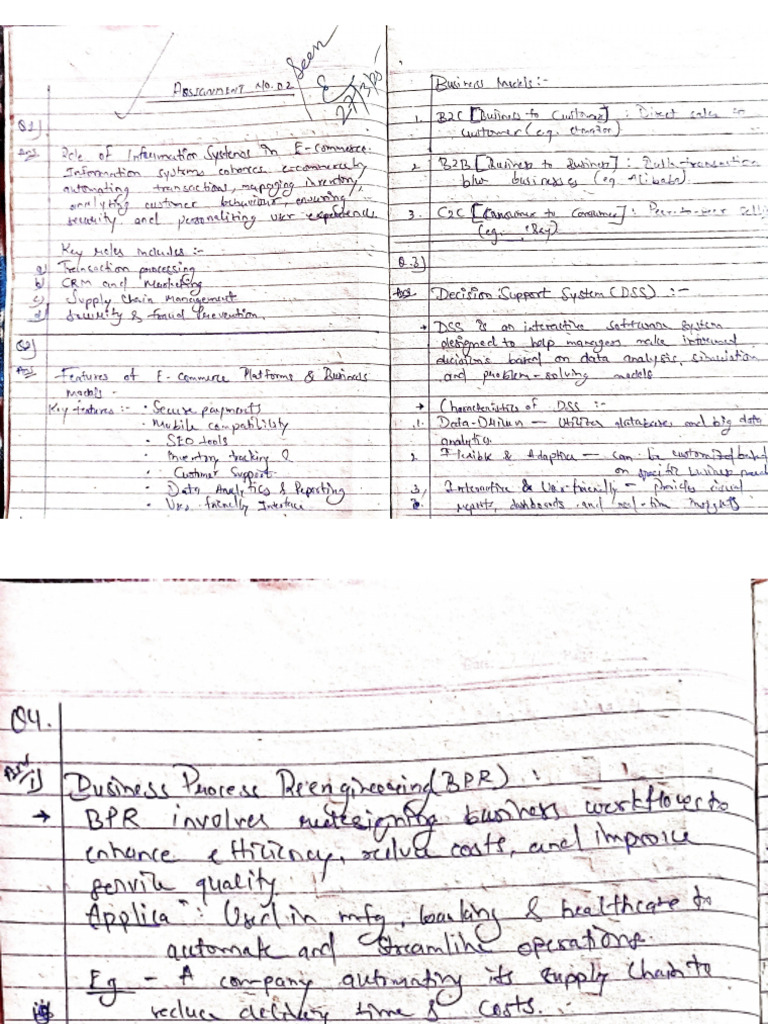 Assignment No. 02
Seen
Q1)
Ans Role of Information Systems in E-commerce.
Information systems enhances e-commerce by
automating transactions, managing inventory,
analyzing customer behaviour, ensuring
security and personalizing user experience
Key roles includes :-
a) Transaction processing
b) CRM and Marketing
c) Supply Chain Management
d) Security & fraud Prevention.
Q2)
Ans Features of E-Commerce Platforms & Business
Models -
Key features :- • Secure payments
• Mobile compatibility
• SEO tools
• Inventory tracking
• Customer Support
• Data Analytics & Reporting
• User friendly Interface
Business Models :-
1. B2C [Business to Customer] : Direct sales
customer (e.g. Amazon)
2. B2B [Business to Business] : Bulk-transaction
b/w businesses (eg Alibaba).
3. C2C [Consumer to Consumer] : Peer-to-peer
(eg. eBay)
Q.3)
Ans Decision Support System (DSS) :-
→ DSS is an interactive software system
designed to help managers make informed
decisions based on data analysis, simulation
and problem-solving models
→ Characteristics of DSS :-
1. Data-Driven — Utilizes databases and big data
analytics.
2. Flexible & Adaptive — can be customized based
on specific business
3. Interactive & User-friendly — Provides visual
reports, dashboards and real-time insights
Q4.
Ans i) Business Process Reengineering (BPR) :
→ BPR involves redesigning business workflows to
enhance efficiency, reduce costs, and improve
service quality
Applica" : Used in mfg, banking & healthcare to
automate and streamline operations
Eg - A company automating its supply chain to
reduce delivery time & costs.